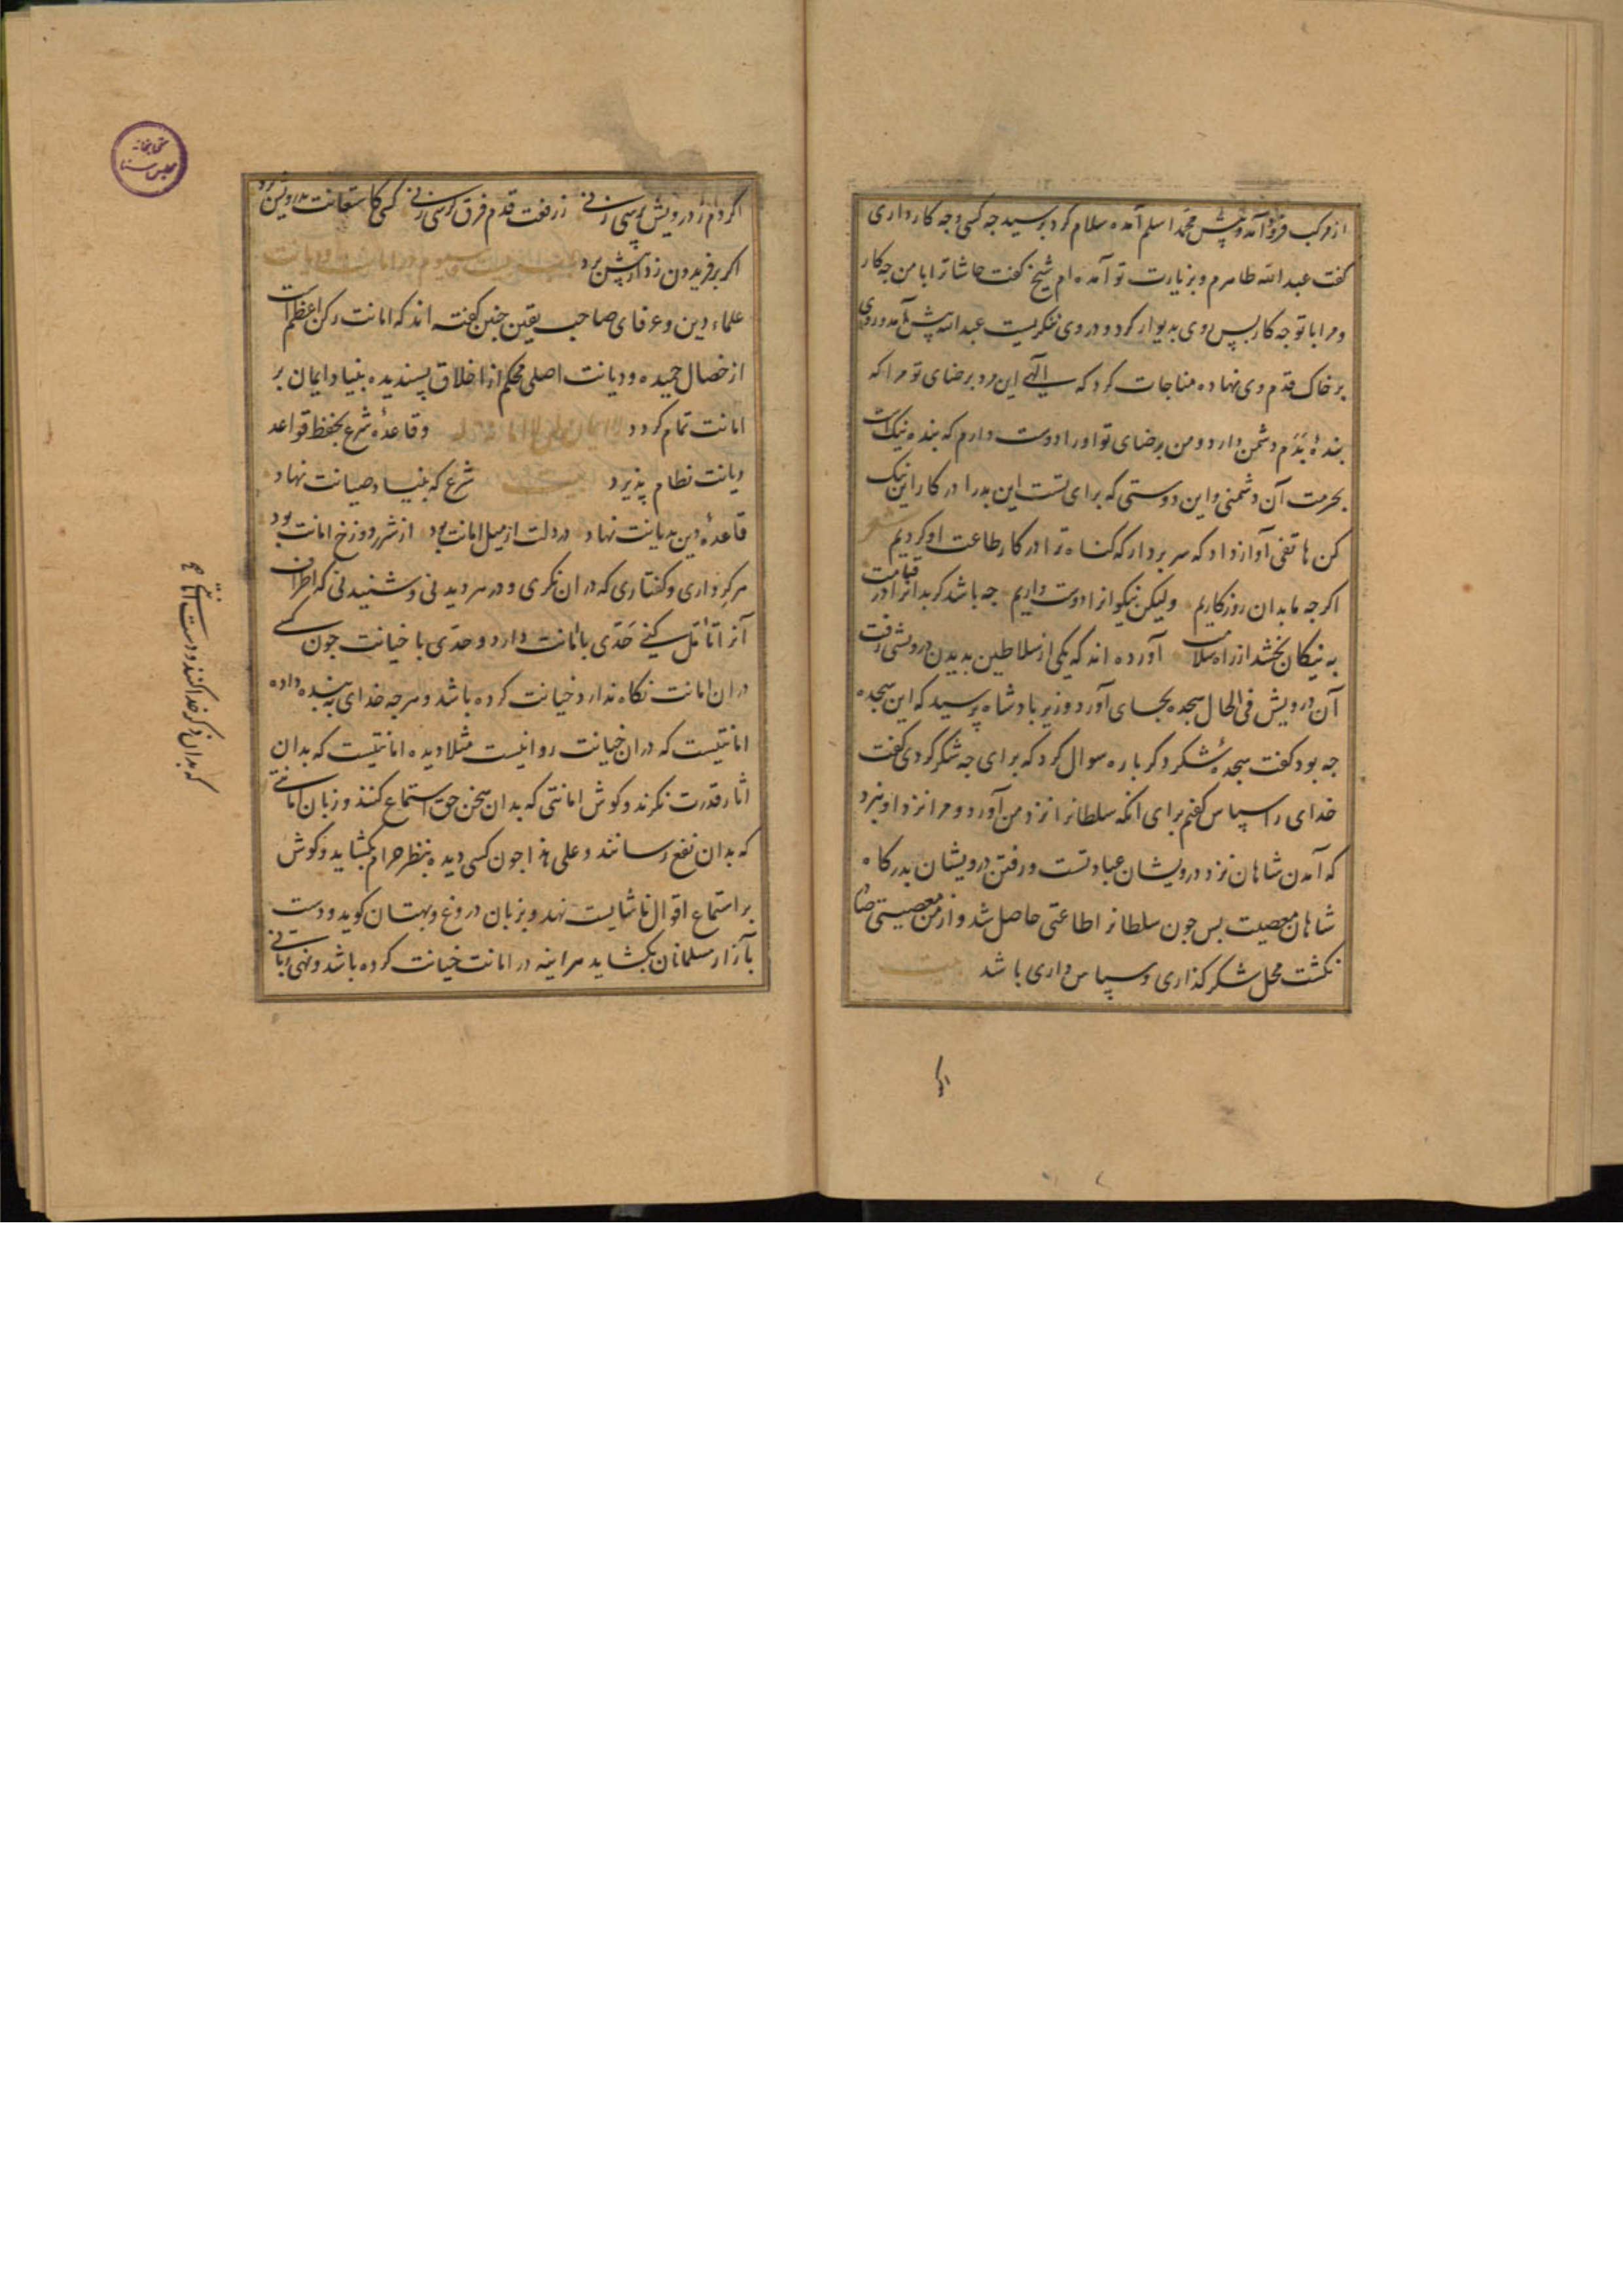 از مرکب فرود آمد و پیش محمد اسلم آمده سلام کرد پرسید چه کسی و چه کار داری
گفت عبد الله طاهرم و بزیارت تو آمده ام شیخ گفت حاشا ترا با من چه کار
و مرا با تو چه کار پس روی بدیوار کرد و در وی ننگریست عبد الله پیش آمد و روی
بر خاک قدم وی نهاده مناجات کرد که الهی این مرد برضای تو مرا که
بندهٔ بدم دشمن دارد و من برضای تو او را دوست دارم که بنده نیک است
بحرمت آن دشمنی و این دوستی که برای تست این بد را در کار این نیک
کن هاتفی آواز داد که سر بردار که گناه ترا در کار طاعت او کردیم شعر
اگر چه ما بدان روزگاریم ولیکن نیکوانرا دوست داریم چه باشد گر بدانرا در قیامت
به نیکان بخشد از راه سلامت آورده اند که یکی از سلاطین بدیدن درویشی رفت
آن درویش فی الحال سجده بجای آورد وزیر پادشاه پرسید که این سجده
چه بود گفت سجدهٔ شکر دگر باره سوال کرد که برای چه شکر کردی گفت
خدای را سپاس گفتم برای انکه سلطانرا نزد من آورد و مرا نزد او نبرد
که آمدن شاهان نزد درویشان عبادتست و رفتن درویشان بدرگاه
شاهان معصیت پس چون سلطانرا طاعتی حاصل شد و از من معصیتی صادر
نگشت محل شکر گذاری و سپاس داری باشد بیت
اگر دم
اگر دم ز درویش پرسی زنی ز رفعت قدم فرق کرسی زنی کسی کاستعانت بدرویش برد
اگر بر فریدون زد از پیش برد باب بیست و سیوم در امانت و دیانت
علماء دین و عرفای صاحب یقین چنین گفته اند که امانت رکن اعظم است
از خصال حمیده و دیانت اصلی محکم از اخلاق پسندیده بنیاد ایمان بر
امانت تمام گردد لا ایمان لمن لا امانة له و قاعدهٔ شرع بحفظ قواعد
دیانت نظام پذیرد بیت شرع که بنیاد صیانت نهاد
قاعدهٔ دین بدیانت نهاد در دلت از میل امانت بود از شرر دوزخ امانت بود
هر کرداری و گفتاری که در ان نگری و در هر دیدنی و شنیدنی که اطراف
آنرا تامل کنی حدی بامانت دارد و حدی با خیانت چون کسی
در ان امانت نگاه ندارد خیانت کرده باشد و هر چه خدای به بنده داده
امانتیست که در ان خیانت روا نیست مثلا دیده امانتیست که بدان
اثار قدرت نگرند و گوش امانتی که بدان سخن حق استماع کنند و زبان امانتی
که بدان نفع رسانند و علی هذا چون کسی دیده بنظر حرام بگشاید و گوش
بر استماع اقوال ناشایست نهد و بزبان دروغ و بهتان گوید و دست
بآزار مسلمانان بگشاید هر اینه در امانت خیانت کرده باشد و نهی ربانی
که بدان ذکر خدا کنند و دست امانتی
کتابخانه
مجلس سنا